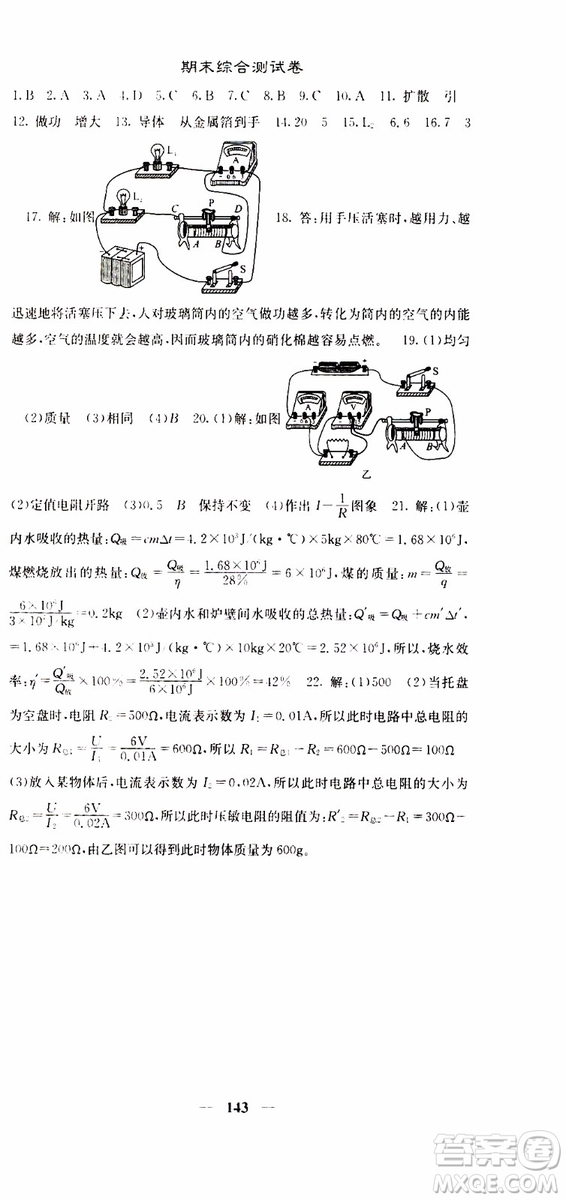 期末综合测试卷
1.B 2.A 3.A 4.D 5.C 6.B 7.B 8.B 9.C 10.A 11.扩散 引
12.做功 增大 13.导体 从金属箔到手 14.20 5 15.L₂ 6.6 16.7 3
L₁
A
L₂
C P D
17.解:如图
A B
18.答:用手压活塞时,越用力、越
S
迅速地将活塞压下去,人对玻璃筒内的空气做功越多,转化为筒内的空气的内能
越多,空气的温度就越高,因而玻璃筒内的硝化棉越容易点燃。 19.(1)均匀
S
A V P
(2)质量 (3)相同 (4)B 20.(1)解:如图
A B
乙
(2)定值电阻开路 (3)0.5 B 保持不变 (4)作出 I-1/R 图象 21.解:(1)壶
内水吸收的热量:Q吸=cmΔt=4.2×10³J/(kg·℃)×5kg×80℃=1.68×10⁶J,
煤燃烧放出的热量:Q放=Q吸/η=1.68×10⁶J/28%=6×10⁶J,煤的质量:m=Q放/q=
6×10⁶J/3×10⁷J/kg=0.2kg (2)壶内水和炉壁间水吸收的总热量:Q′吸=Q吸+cm′Δt′
=1.68×10⁶J+4.2×10³J/(kg·℃)×10kg×20℃=2.52×10⁶J,所以,烧水效
率:η′=Q′吸/Q放×100%=2.52×10⁶J/6×10⁶J×100%=42% 22.解:(1)500 (2)当托盘
为空盘时,电阻R₂=500Ω,电流表示数为I₁=0.01A,所以此时电路中总电阻的大小
为R总₁=U/I₁=6V/0.01A=600Ω,所以R₁=R总₁-R₂=600Ω-500Ω=100Ω
(3)放入某物体后,电流表示数为I₂=0.02A,所以此时电路中总电阻的大小为
R总₂=U/I₂=6V/0.02A=300Ω,所以此时压敏电阻的阻值为:R′₂=R总₂-R₁=300Ω-
100Ω=200Ω,由乙图可以得到此时物体质量为600g。
— 143 —
答案圈
MXQE.COM